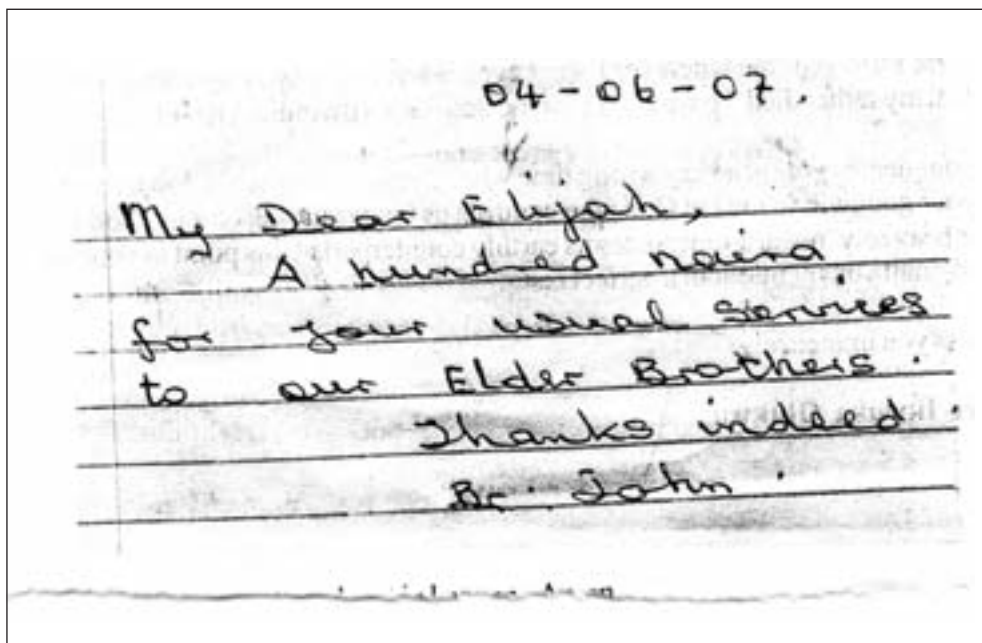 04-06-07.
My Dear Elijah,
A hundred naira
for your usual services
to our Elder Brothers.
Thanks indeed.
Br. John.